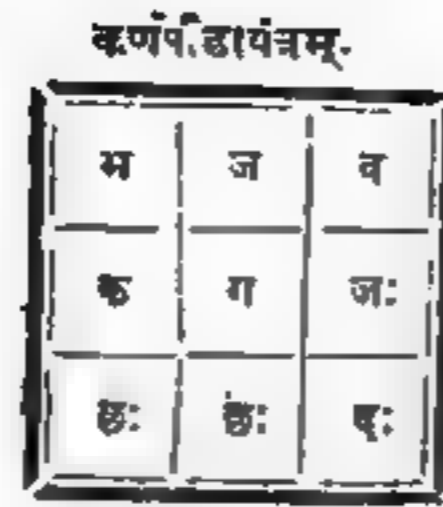 कर्णपीडायंत्रम्.
भ ज व
क ग जः
छः छंः वः